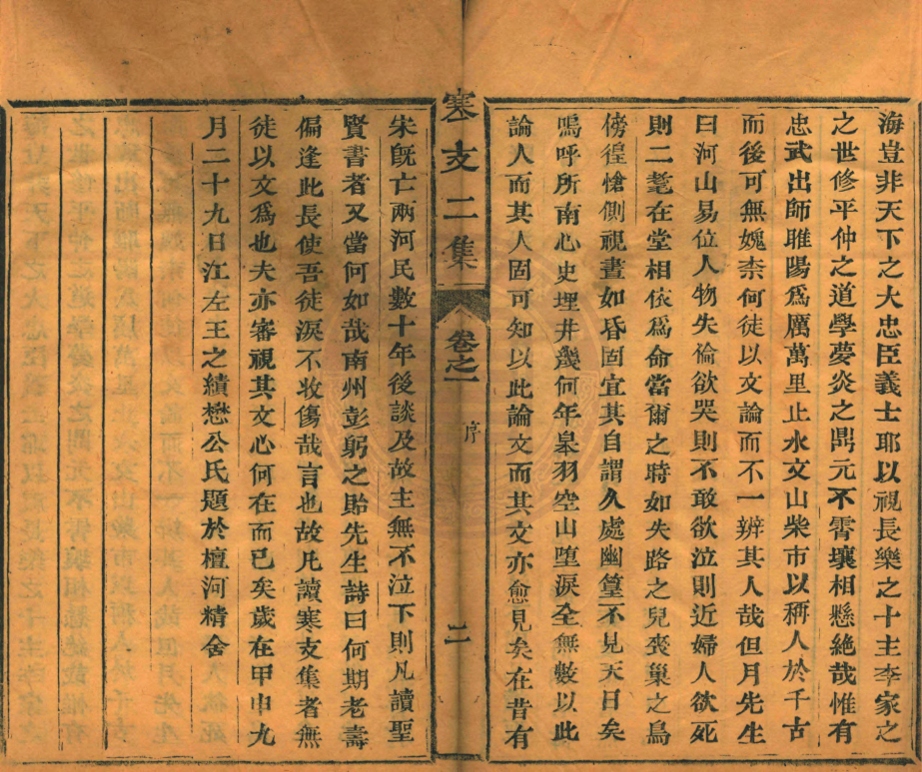 海豈非天下之大忠臣義士耶以視長樂之十主李家之
之世修平仲之道學夢炎之鼎元不霄壤相懸絶哉惟有
忠武出師睢陽爲厲萬里止水文山柴市以稱人於千古
而後可無媿柰何徒以文論而不一辨其人哉但月先生
曰河山易位人物失倫欲哭則不敢欲泣則近婦人欲死
則二耄在堂相依爲命當爾之時如失路之兒喪巢之鳥
傍徨愴側視晝如昏固宜其自謂久處幽篁不見天日矣
嗚呼所南心史埋井幾何年皋羽空山墮淚全無數以此
論人而其人固可知以此論文而其文亦愈見矣在昔有
寒支二集
卷之一
序
二
宋旣亡兩河民數十年後談及故主無不泣下則凡讀聖
賢書者又當何如哉南州彭躬之貽先生詩曰何期老壽
偏逢此長使吾徒淚不收傷哉言也故凡讀寒支集者無
徒以文爲也夫亦審視其文心何在而已矣歲在甲申九
月二十九日江左王之績懋公氏題於檀河精舍